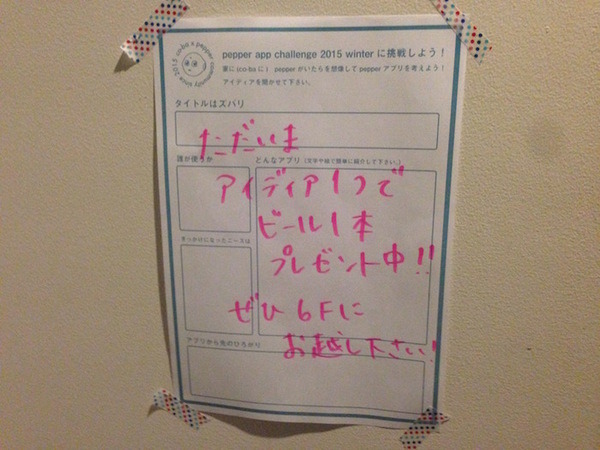 co-ba x pepper community since 2015
pepper app challenge 2015 winter に挑戦しよう！
家に(co-baに) pepperがいたらを想像して pepper アプリを考えよう！
アイディアを聞かせて下さい。
タイトルはズバリ
ただいま
誰が使うか
どんなアプリ（文字や絵で簡単に紹介して下さい。）
アイディア1つで
ビール1本
プレゼント中!!
きっかけになったニースは
ぜひ6Fに
お越し下さい!
アプリから先のひろがり